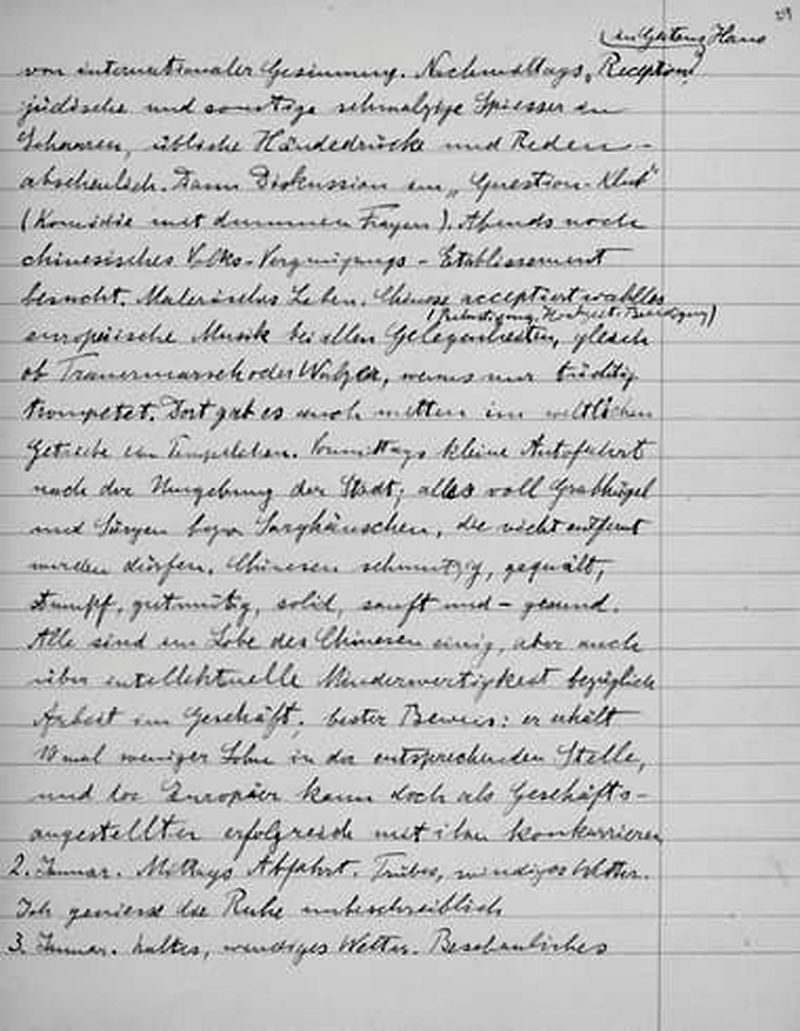 29
in Gatens Haus
von internationaler Gesinnung. Nachmittags „Reception“
jüdische und sonstige schmalzige Spiesser in
Scharen, übliche Händedrücke und Reden –
abscheulich. Dann Diskussion im „Question-Klub“
(Komödie mit dummen Fragen). Abends noch
chinesisches Volks-Vergnügungs-Etablissement
besucht. Malerisches Leben. Chinese acceptiert wahllos
(Belustigung, Hochzeit, Beerdigung)
europäische Musik bei allen Gelegenheiten, gleich
ob Trauermarsch oder Walzer, wenns nur tüchtig
trompetet. Dort gab es auch mitten im weltlichen
Getriebe ein Tempelchen. Vormittags kleine Autofahrt
nach der Umgebung der Stadt; alles voll Grabhügel
und Särgen bezw Sarghäuschen, die nicht entfernt
werden dürfen. Chinesen schmutzig, gequält,
stumpf, gutmütig, solid, sanft und – gesund.
Alle sind im Lobe des Chinesen einig, aber auch
über intellektuelle Minderwertigkeit bezüglich
Arbeit im Geschäft; bester Beweis: er erhält
10 mal weniger Lohn in der entsprechenden Stelle,
und der Europäer kann doch als Geschäfts-
angestellter erfolgreich mit ihm konkurrieren
2. Januar. Mittags Abfahrt. Trübes, windiges Wetter.
Ich geniesse die Ruhe unbeschreiblich
3. Januar. kaltes, windiges Wetter. Beschauliches